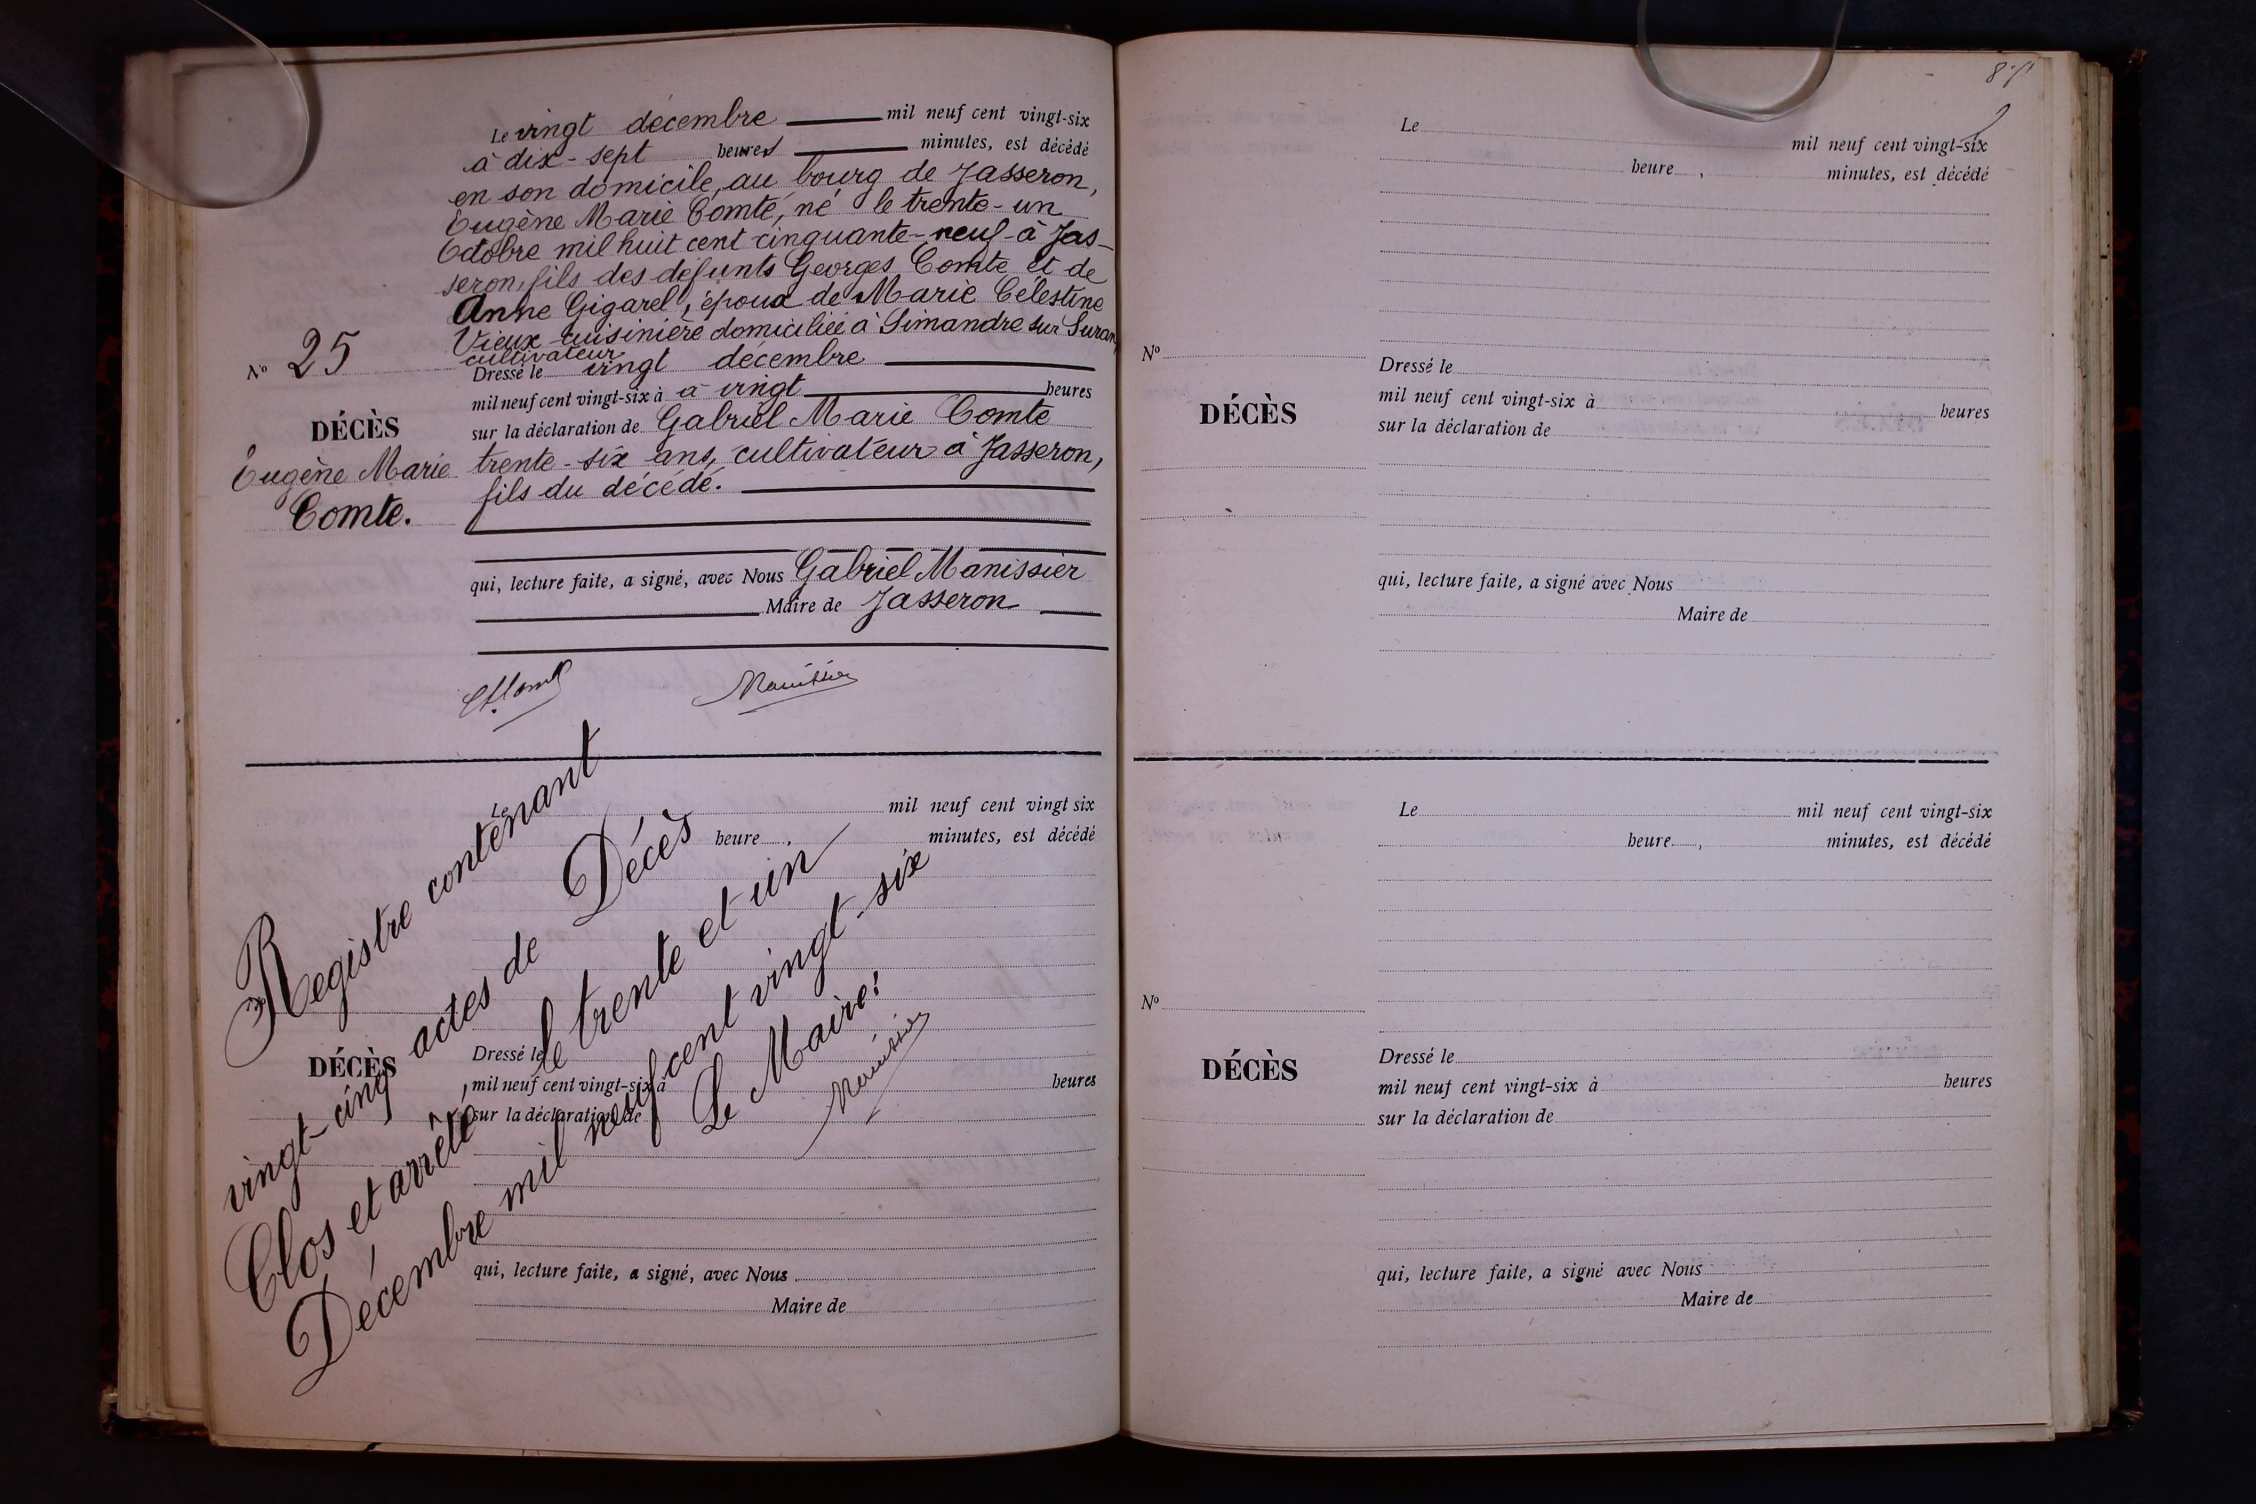 Le vingt décembre mil neuf cent vingt-six
à dix-sept heures minutes, est décédé
en son domicile, au bourg de Jasseron,
Eugène Marie Comte, né le trente-un
Octobre mil huit cent cinquante-neuf à Jas-
seron, fils des défunts Georges Comte et de
Anne Gigarel, époux de Marie Célestine
Vieux cuisinière domiciliée à Simandre sur Suran,
cultivateur
Nº 25
Dressé le vingt décembre
mil neuf cent vingt-six à à vingt heures
DÉCÈS
sur la déclaration de Gabriel Marie Comte
Eugène Marie
trente-six ans, cultivateur à Jasseron,
Comte.
fils du décédé.
qui, lecture faite, a signé, avec Nous Gabriel Manissier
Maire de Jasseron
Manissier
Le mil neuf cent vingt six
heure , minutes, est décédé
DÉCÈS
Dressé le
mil neuf cent vingt-six à heures
sur la déclaration de
qui, lecture faite, a signé, avec Nous
Maire de
Registre contenant
vingt-cinq actes de Décès
Clos et arrêté, le trente et un
Décembre mil neuf cent vingt-six
Le Maire:
Manissier
Le
mil neuf cent vingt-six
heure , minutes, est décédé
Nº
Dressé le
mil neuf cent vingt-six à heures
DÉCÈS
sur la déclaration de
qui, lecture faite, a signé avec Nous
Maire de
Le mil neuf cent vingt-six
heure , minutes, est décédé
Nº
Dressé le
DÉCÈS
mil neuf cent vingt-six à heures
sur la déclaration de
qui, lecture faite, a signé avec Nous
Maire de